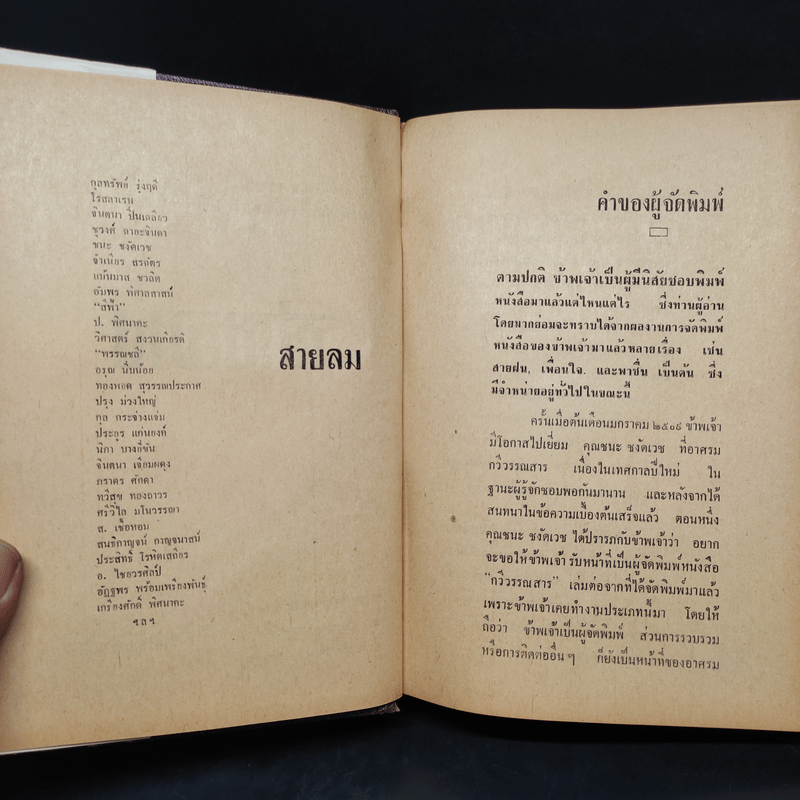 กุลทรัพย์ รุ่งฤดี
โรสลาเรน
จินตนา ปิ่นเฉลียว
ชูวงศ์ ฉายะจินดา
ชนะ ชงัดเวช
จำเนียร สรฉัตร
แม้นมาส ชวลิต
อัมพร พิศาลสาสน์
"สีฟ้า"
ป. พิศนาคะ
วิศาสตร์ สงวนเกียรติ
"พรรณชลี"
อรุณ นิ่มน้อย
ทองหยด สุวรรณประกาศ
ปรุง ม่วงใหญ่
กุล กระจ่างแจ่ม
ประยูร แก่นยงค์
นิภา บางยี่ขัน
จินตนา เจียมผดุง
ภราดร ศักดา
ทวีสุข ทองถาวร
ศรีวิไล มโนวรรณา
ส. เชื้อหอม
สนธิกาญจน์ กาญจนาสน์
ประสิทธิ์ โรหิตเสถียร
อ. ไชยวรศิลป์
อัฏฐพร พร้อมเพรียงพันธุ์
เกรียงศักดิ์ พิศนาคะ
ฯลฯ
สายลม
คำของผู้จัดพิมพ์
ตามปกติ ข้าพเจ้าเป็นผู้มีนิสัยชอบพิมพ์
หนังสือมาแล้วแต่ไหนแต่ไร ซึ่งท่านผู้อ่าน
โดยมากย่อมจะทราบได้จากผลงานการจัดพิมพ์
หนังสือของข้าพเจ้ามาแล้วหลายเรื่อง เช่น
สายฝน, เพื่อนใจ. และพาชื่น เป็นต้น ซึ่ง
มีจำหน่ายอยู่ทั่วไปในขณะนี้
ครั้นเมื่อต้นเดือนมกราคม ๒๕๐๙ ข้าพเจ้า
มีโอกาสไปเยี่ยม คุณชนะ ชงัดเวช ที่อาศรม
กวีวรรณสาร เนื่องในเทศกาลปีใหม่ ใน
ฐานะผู้รู้จักชอบพอกันมานาน และหลังจากได้
สนทนาในข้อความเบื้องต้นเสร็จแล้ว ตอนหนึ่ง
คุณชนะ ชงัดเวช ได้ปรารภกับข้าพเจ้าว่า อยาก
จะขอให้ข้าพเจ้า รับหน้าที่เป็นผู้จัดพิมพ์หนังสือ
"กวีวรรณสาร" เล่มต่อจากที่ได้จัดพิมพ์มาแล้ว
เพราะข้าพเจ้าเคยทำงานประเภทนี้มา โดยให้
ถือว่า ข้าพเจ้าเป็นผู้จัดพิมพ์ ส่วนการรวบรวม
หรือการติดต่ออื่น ๆ ก็ยังเป็นหน้าที่ของอาศรม